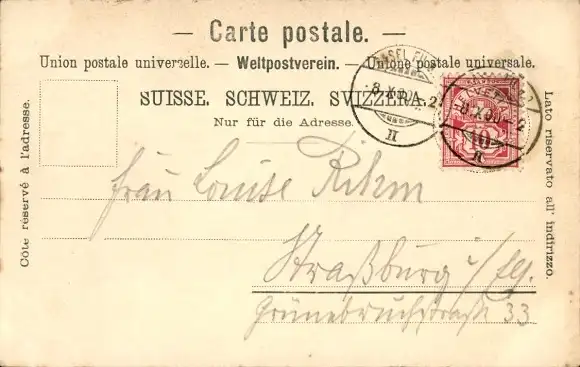 — Carte postale. —
Union postale universelle. — Weltpostverein. — Unione postale universale.
SUISSE. SCHWEIZ. SVIZZERA.
Nur für die Adresse.
Côté réservé à l'adresse.
Lato riservato all' indirizzo.
Frau Louise Rihm
Straßburg i/Els.
Grünebruchstraße 33
BASEL
8.X.00.
II
HELVETIA
8.X.00.
10
II